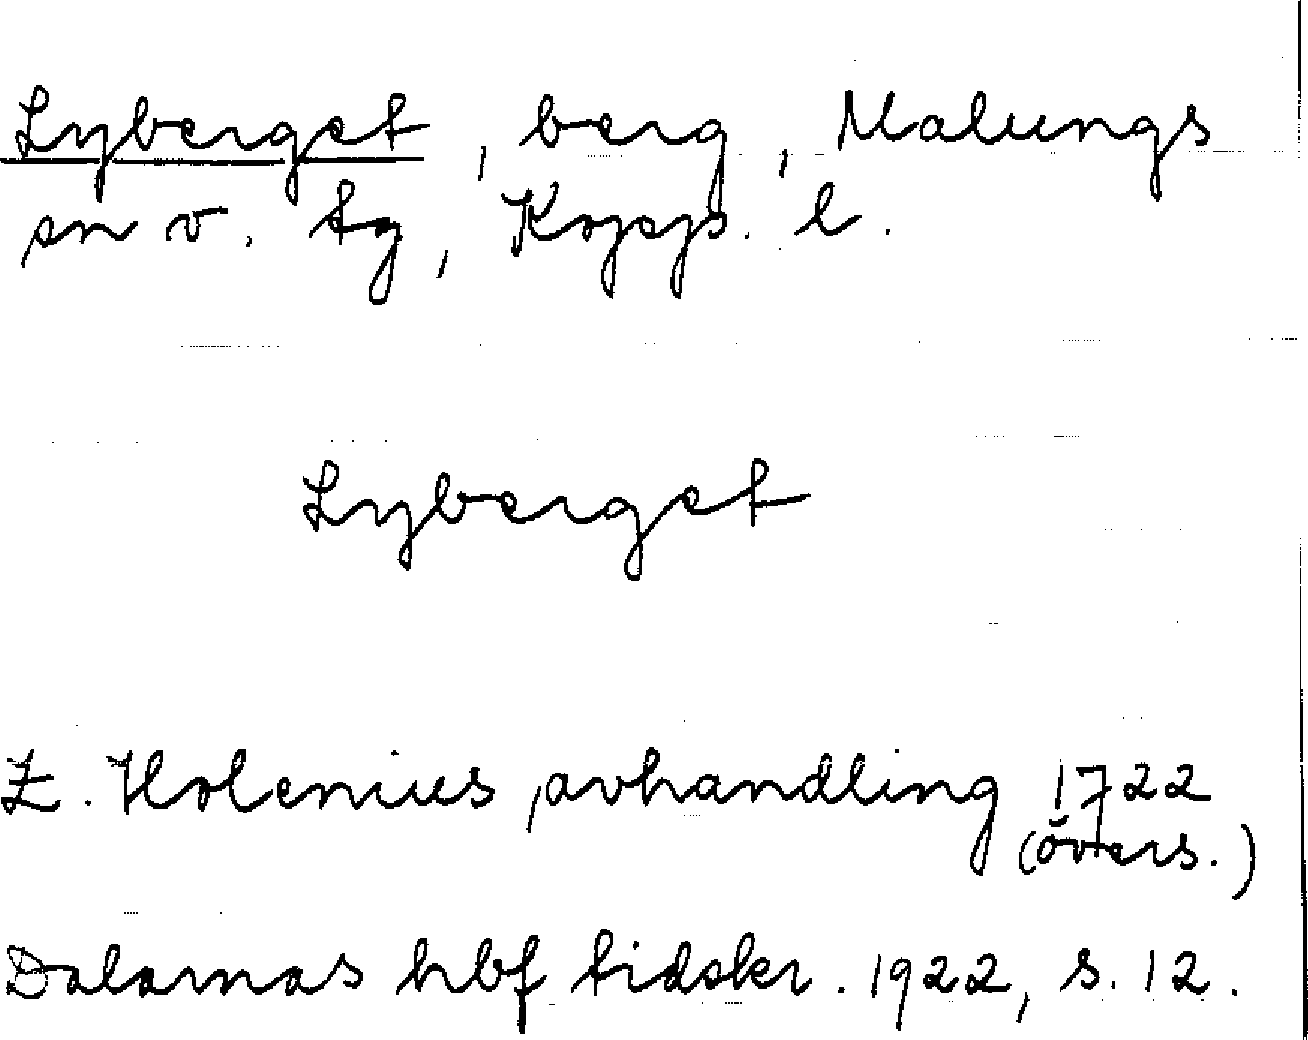 Lyberget, berg, Malungs
sn v. tg, Kopp. l.
Lyberget
E. Holenius, avhandling 1722
(övers.)
Dalarnas hbf tidskr. 1922, s. 12.